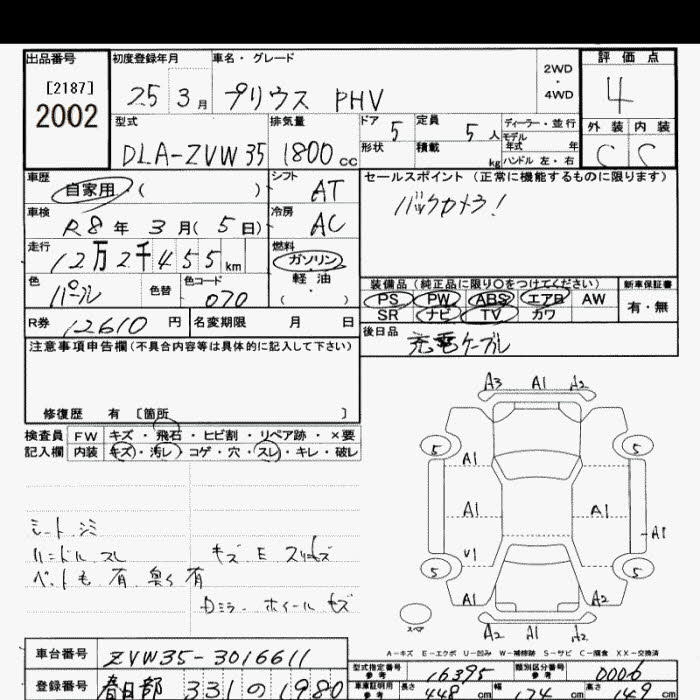 出品番号 初度登録年月 車名・グレード 2WD・4WD 評価点
[2187]
2002 25 3月 プリウス PHV 4
型式 排気量 ドア 5 定員 5人 ディーラー・並行 外装 内装
モデル年式 年
DLA-ZVW35 1800cc 形状 積載 kg ハンドル 左・右 C C
車歴 自家用 ( ) シフト AT セールスポイント (正常に機能するものに限ります)
車検 R8年 3月( 5日) 冷房 AC バックカメラ!
走行 12万2千455km 燃料 ガソリン・軽油 ( )
色 パール 色替 色コード 070
装備品 (純正品に限り○をつけてください) 新車保証書
PS PW ABS エアB AW 有・無
SR ナビ TV カワ
R券 12610円 名変期限 月 日
後日品 充電ケーブル
注意事項申告欄(不具合内容等は具体的に記入して下さい)
修復歴 有 〔箇所 〕
検査員 FW キズ・飛石・ヒビ割・リペア跡・×要
記入欄 内装 キズ・汚レ・コゲ・穴・スレ・キレ・破レ
シートシミ
ハンドルスレ
キズ E
有 有
Dミラー ホイールキズ
A3 A1 A2
5 5
A1
A1 A1 A1
V1
5 5
A1 A2
スペア
A2 A1 A2
A-キズ E-エクボ U-凹み W-補修跡 S-サビ C-腐食 XX-交換済
車台番号 ZVW35-3016611
型式指定番号 参考 16395 類別区分番号 参考 0006
登録番号 春日部 331 の 1980
車庫証明用 参考 長さ 448cm 幅 174cm 高さ 149cm